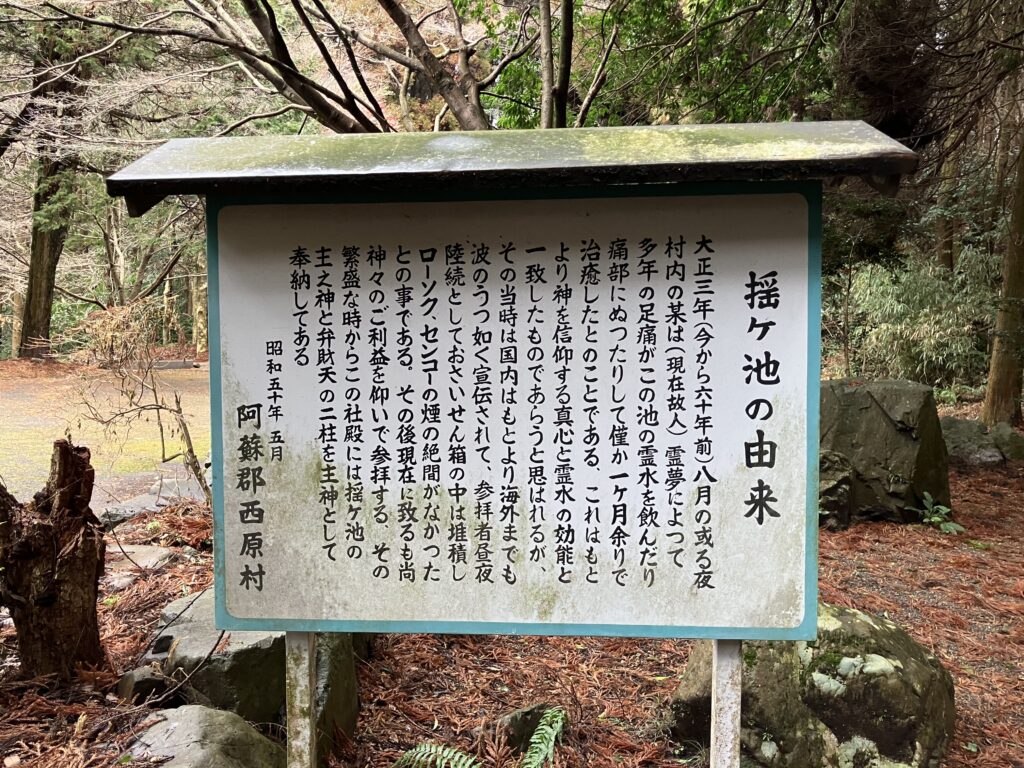 揺ケ池の由来
大正三年(今から六十年前)八月の或る夜
村内の某は(現在故人)霊夢によつて
多年の足痛がこの池の霊水を飲んだり
痛部にぬつたりして僅か一ヶ月余りで
治癒したとのことである、これはもと
より神を信仰する真心と霊水の効能と
一致したものであらうと思はれるが、
その当時は国内はもとより海外までも
波のうつ如く宣伝されて、参拝者昼夜
陸続としておさいせん箱の中は堆積し
ローソク、センコーの煙の絶間がなかつた
との事である。その後現在に致るも尚
神々のご利益を仰いで参拝する、その
繁盛な時からこの社殿には揺ケ池の
主之神と弁財天の二柱を主神として
奉納してある
昭和五十年五月
阿蘇郡西原村